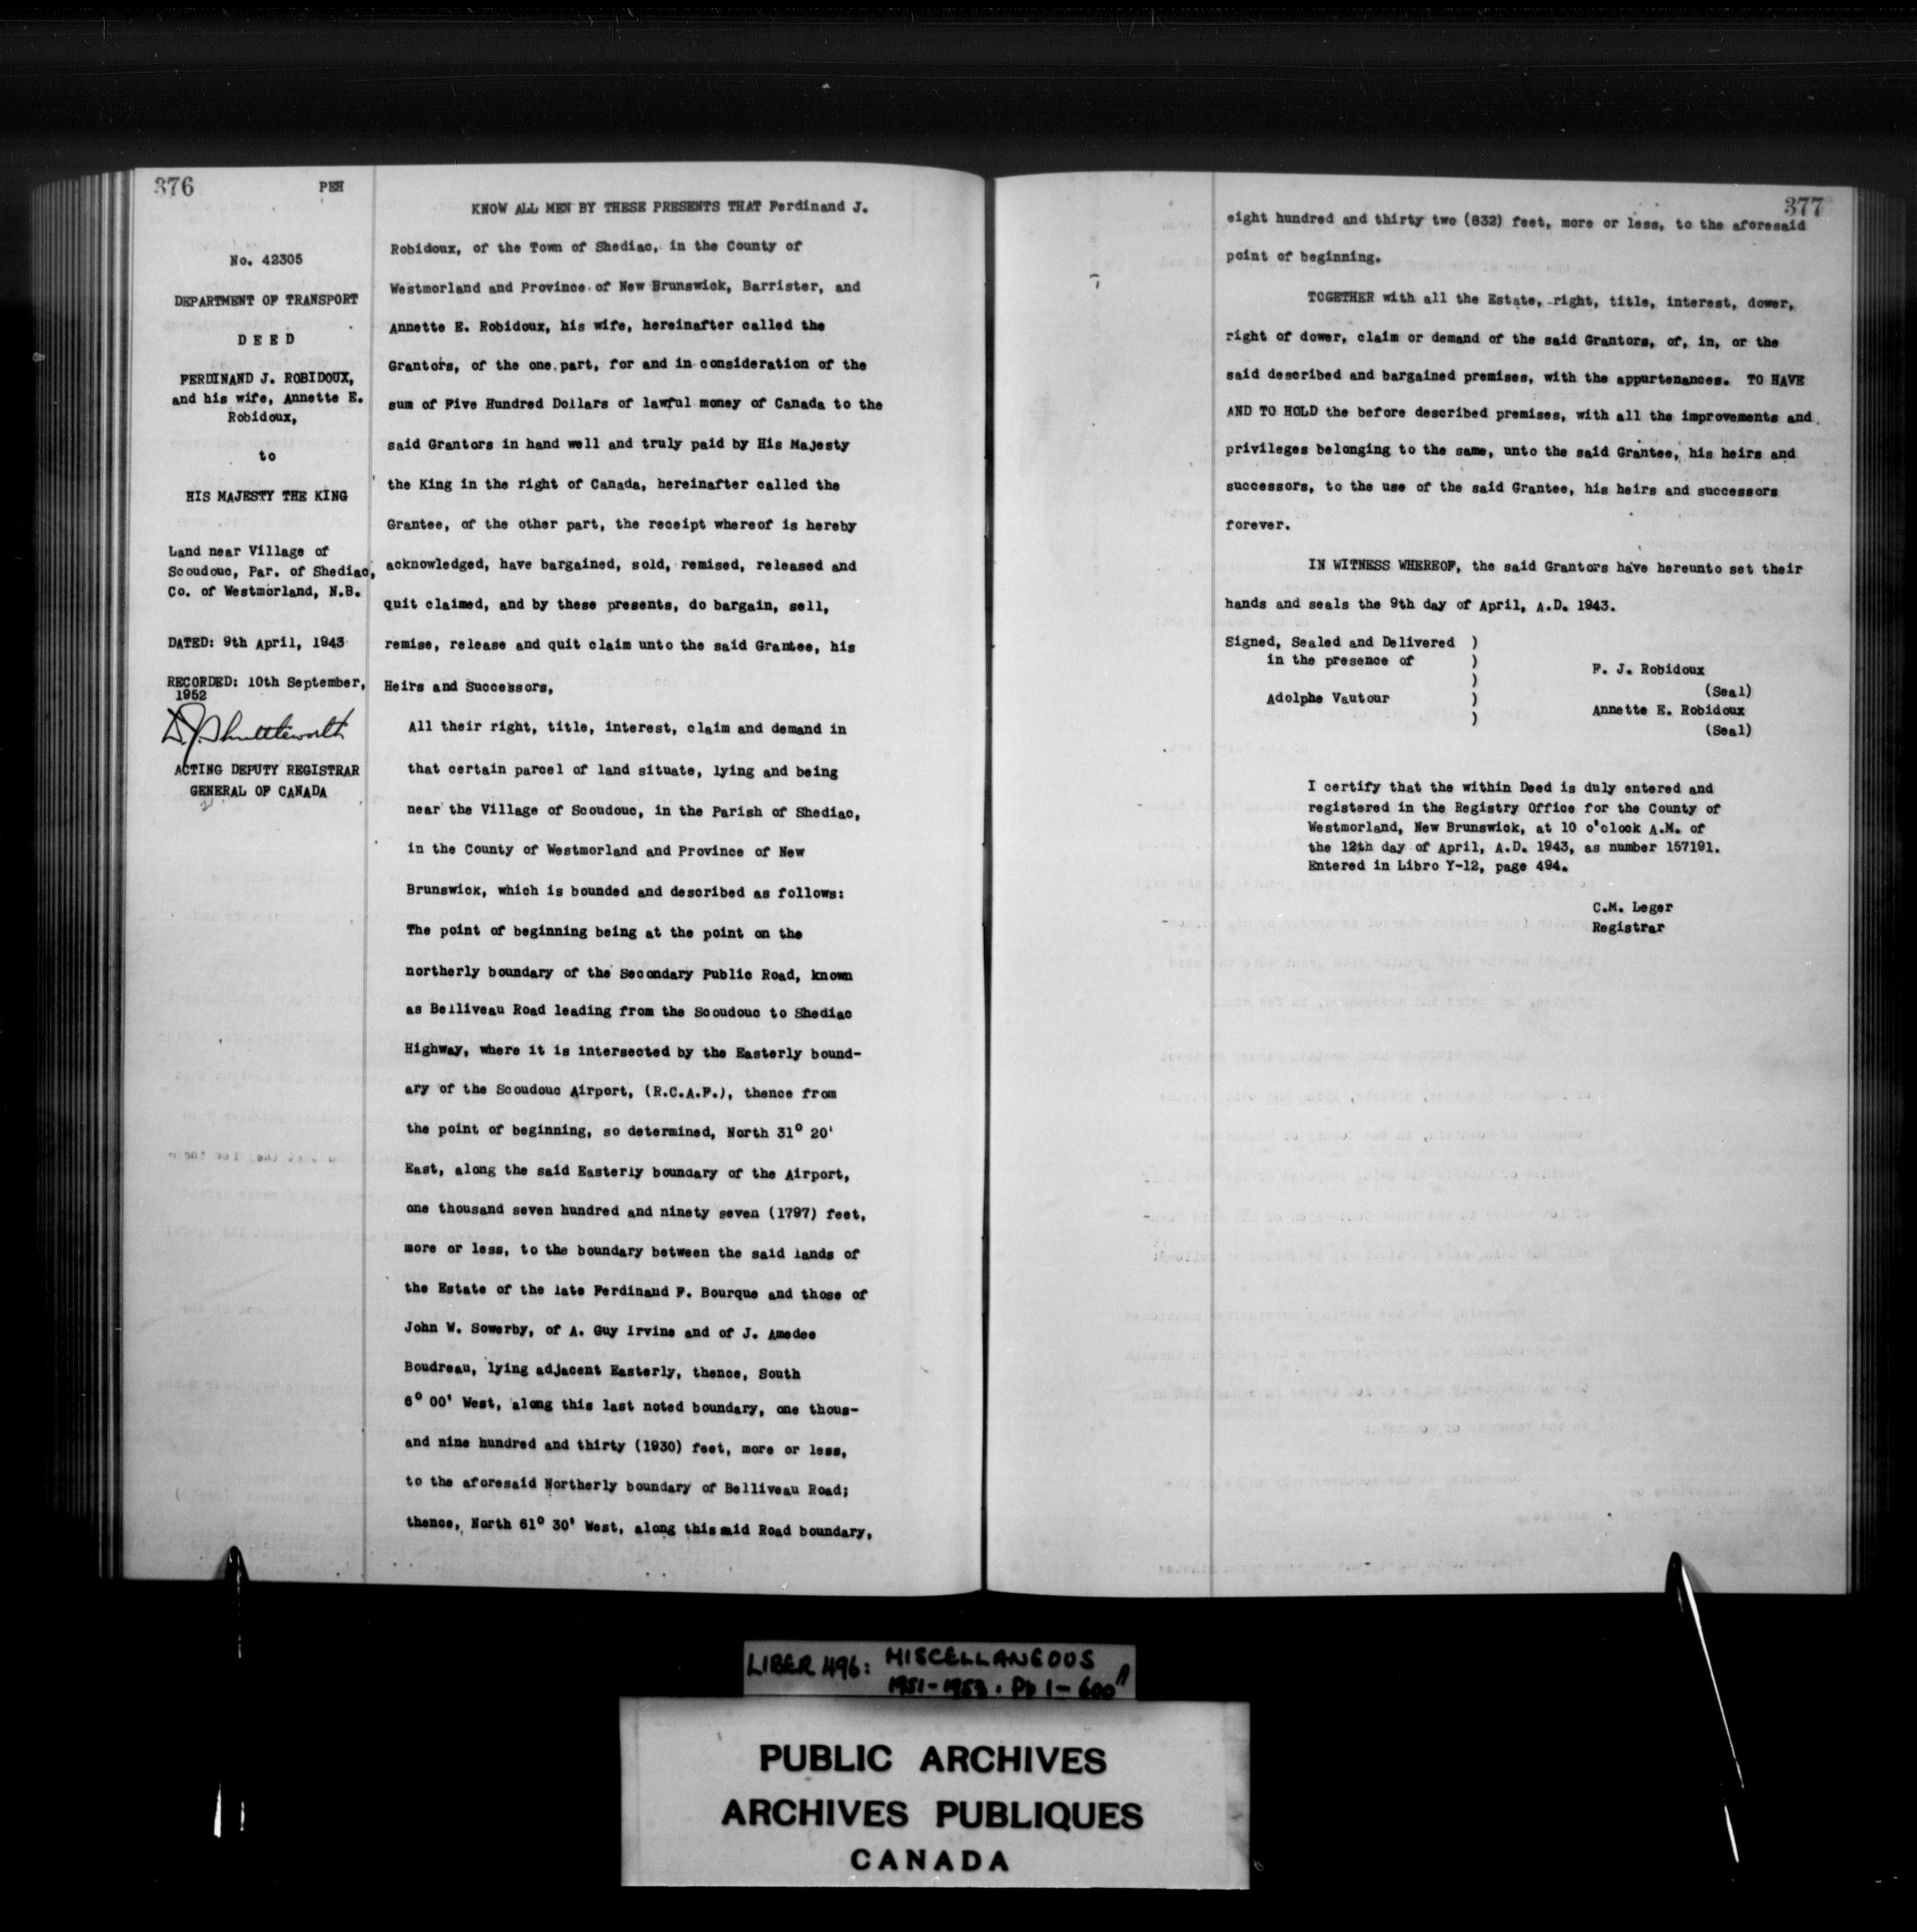 376
PEH
No. 42305
DEPARTMENT OF TRANSPORT
D E E D
FERDINAND J. ROBIDOUX,
and his wife, Annette E.
Robidoux,
to
HIS MAJESTY THE KING
Land near Village of
Scoudouc, Par. of Shediac,
Co. of Westmorland, N.B.
DATED: 9th April, 1943
RECORDED: 10th September,
1952
D.J. Shuttleworth
ACTING DEPUTY REGISTRAR
GENERAL OF CANADA
KNOW ALL MEN BY THESE PRESENTS THAT Ferdinand J.
Robidoux, of the Town of Shediac, in the County of
Westmorland and Province of New Brunswick, Barrister, and
Annette E. Robidoux, his wife, hereinafter called the
Grantors, of the one part, for and in consideration of the
sum of Five Hundred Dollars of lawful money of Canada to the
said Grantors in hand well and truly paid by His Majesty
the King in the right of Canada, hereinafter called the
Grantee, of the other part, the receipt whereof is hereby
acknowledged, have bargained, sold, remised, released and
quit claimed, and by these presents, do bargain, sell,
remise, release and quit claim unto the said Grantee, his
Heirs and Successors,
All their right, title, interest, claim and demand in
that certain parcel of land situate, lying and being
near the Village of Scoudouc, in the Parish of Shediac,
in the County of Westmorland and Province of New
Brunswick, which is bounded and described as follows:
The point of beginning being at the point on the
northerly boundary of the Secondary Public Road, known
as Belliveau Road leading from the Scoudouc to Shediac
Highway, where it is intersected by the Easterly bound-
ary of the Scoudouc Airport, (R.C.A.F.), thence from
the point of beginning, so determined, North 31° 20'
East, along the said Easterly boundary of the Airport,
one thousand seven hundred and ninety seven (1797) feet,
more or less, to the boundary between the said lands of
the Estate of the late Ferdinand F. Bourque and those of
John W. Sowerby, of A. Guy Irvine and of J. Amedee
Boudreau, lying adjacent Easterly, thence, South
6° 00' West, along this last noted boundary, one thous-
and nine hundred and thirty (1930) feet, more or less,
to the aforesaid Northerly boundary of Belliveau Road;
thence, North 61° 30' West, along this said Road boundary,
377
eight hundred and thirty two (832) feet, more or less, to the aforesaid
point of beginning.
TOGETHER with all the Estate, right, title, interest, dower,
right of dower, claim or demand of the said Grantors, of, in, or the
said described and bargained premises, with the appurtenances. TO HAVE
AND TO HOLD the before described premises, with all the improvements and
privileges belonging to the same, unto the said Grantee, his heirs and
successors, to the use of the said Grantee, his heirs and successors
forever.
IN WITNESS WHEREOF, the said Grantors have hereunto set their
hands and seals the 9th day of April, A.D. 1943.
Signed, Sealed and Delivered )
in the presence of )
)
F. J. Robidoux
(Seal)
Adolphe Vautour )
)
Annette E. Robidoux
(Seal)
I certify that the within Deed is duly entered and
registered in the Registry Office for the County of
Westmorland, New Brunswick, at 10 o'clock A.M. of
the 12th day of April, A.D. 1943, as number 157191.
Entered in Libro Y-12, page 494.
C.M. Leger
Registrar
LIBER 496: MISCELLANEOUS
1951-1953. Pp 1-600
PUBLIC ARCHIVES
ARCHIVES PUBLIQUES
CANADA